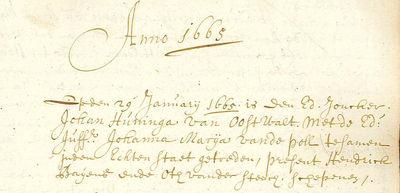 Anno 1665
Opden 29 January 1665 is den Ed. Joncker
Johan Huninga van Oostwalt. Met de Ed:
Juffr. Johanna Marya vande poll te samen
inden Echten staet getreden, present Hendrick
Bayens ende Oth vander Steegh, schepenen.